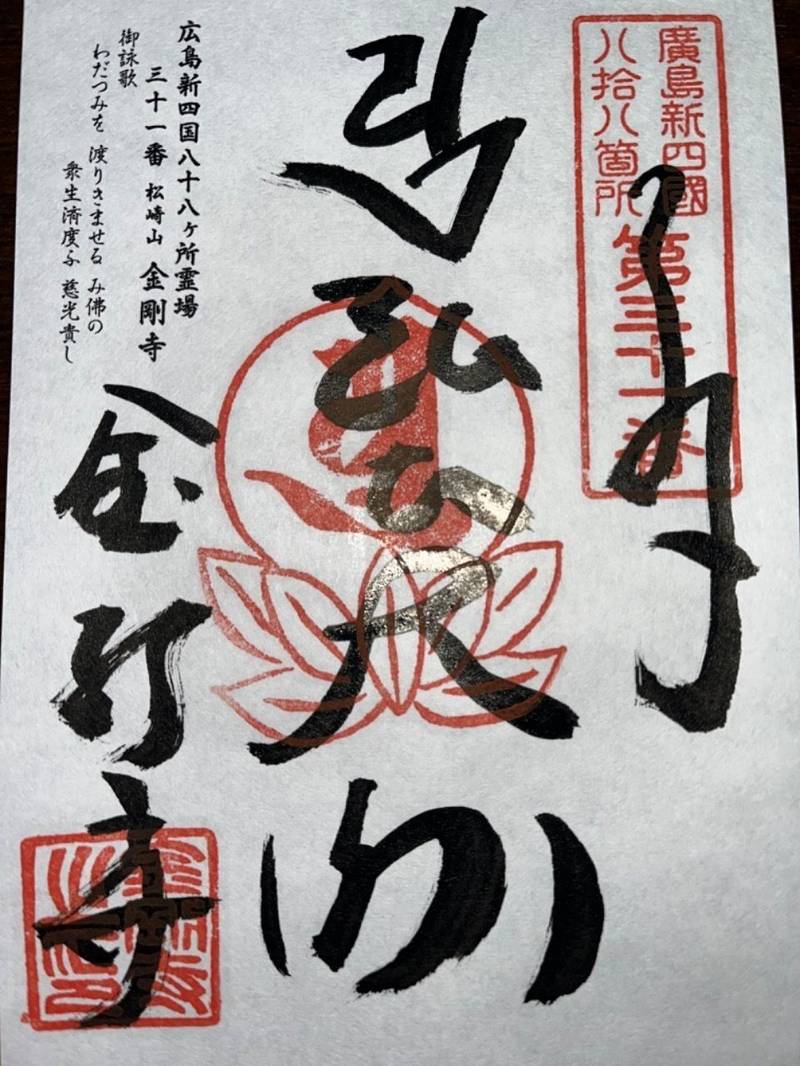 廣島新四國
八拾八箇所
第三十一番
奉拝
弘法大師
金剛寺
広島新四国八十八ヶ所霊場
三十一番 松崎山 金剛寺
御詠歌
わだつみを 渡りきませる み佛の
衆生済度ふ 慈光貴し